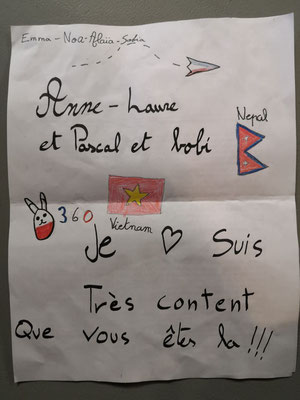 Emma - Noa - Alaïa - Sofia
Anne - Laure
et Pascal et bobi
Nepal
360
Vietnam
Je ♡ Suis
Très content
Que vous êtes la !!!